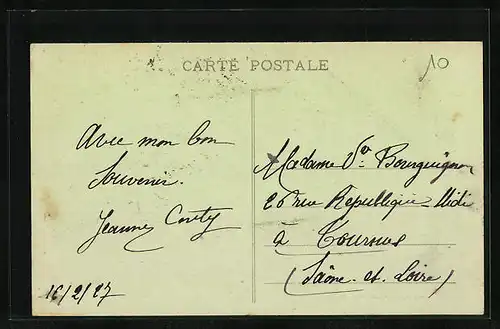 CARTE POSTALE
10
Avec mon bon
Souvenir.
Jeanne Conty
16/2/27
Madame Vve Bourguignon
26 rue République Midi
à Tournus
(Saône-et-Loire)